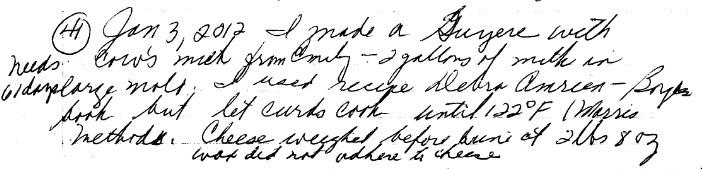 (44) Jan 3, 2012 I made a Guyere with
needs cow's milk from Emily - 2 gallons of milk in
61 days large mold. I used recipe Debra Amrien - Boyes
book but let curds cook until 122°F (Morris
method). Cheese weighed before brine at 2 lbs 8 oz
wax did not adhere to cheese